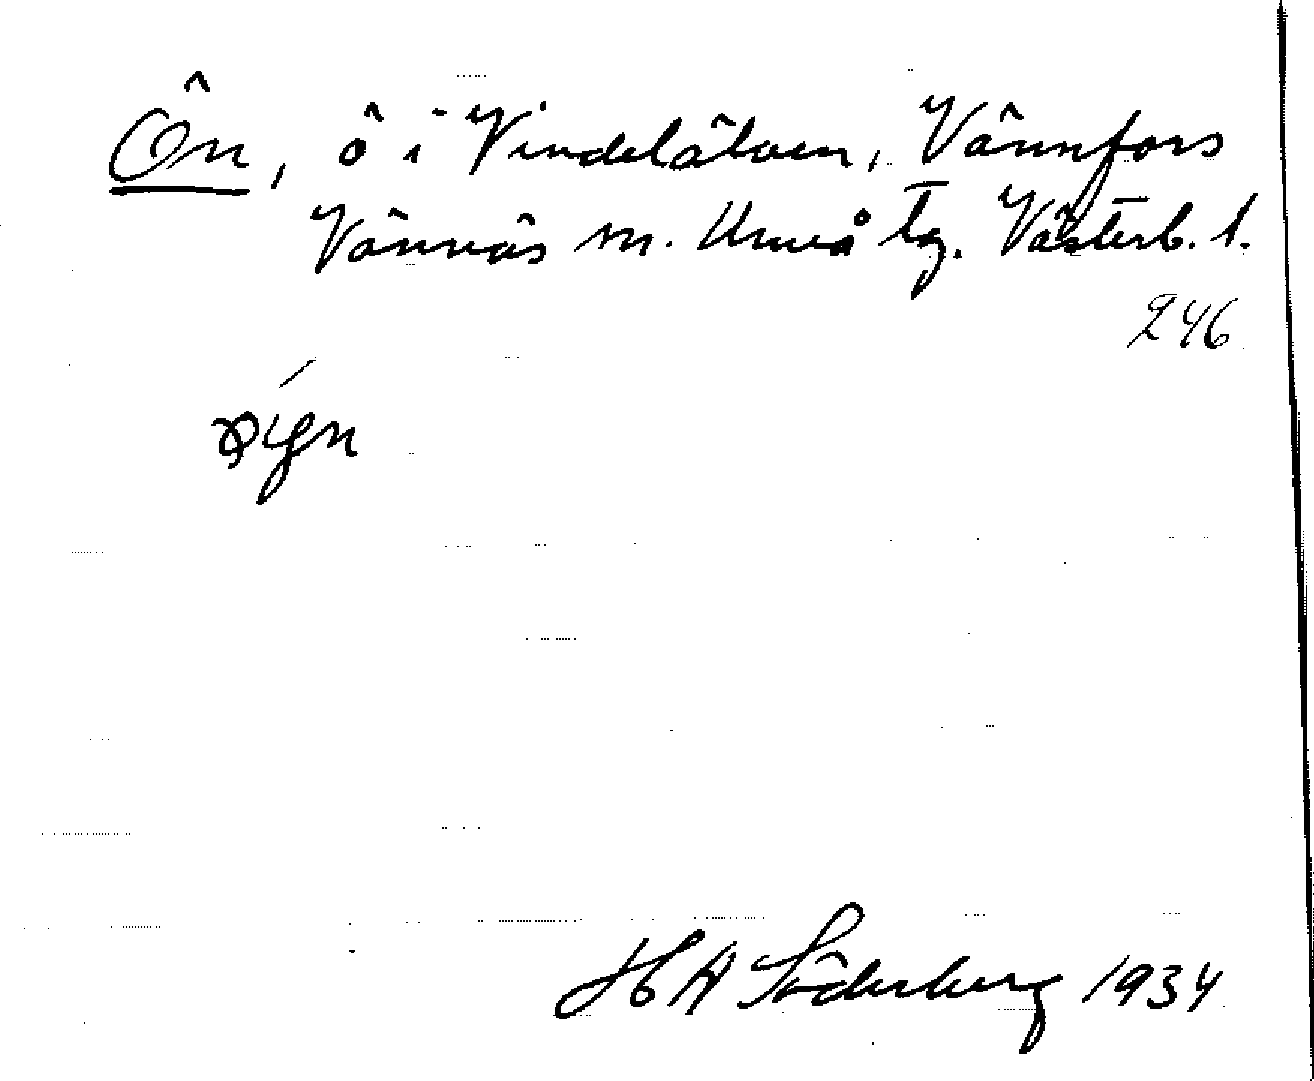 Ön, ö i Vindelälven, Vännfors
Vännäs sn. Umeå tg. Västerb. l.
246
H A Söderberg 1934